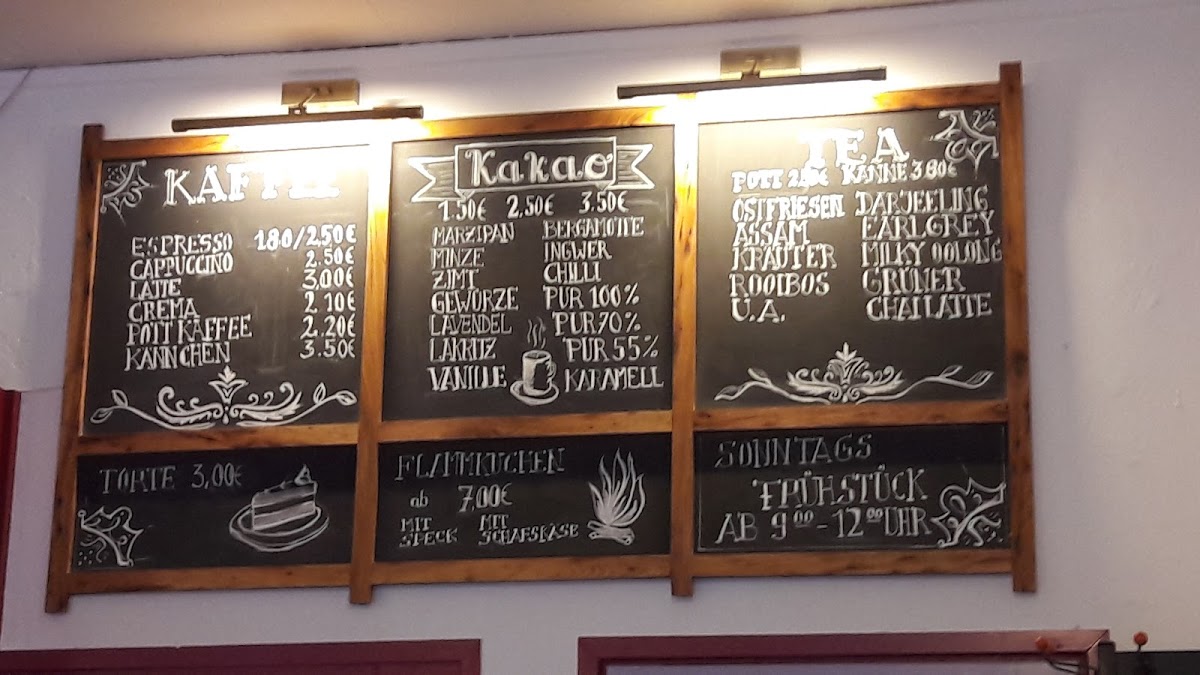 KAFFEE
ESPRESSO 1.80/2,50€
CAPPUCCINO 2.50€
LATTE 3.00€
CREMA 2.10€
POTT KAFFEE 2.20€
KÄNNCHEN 3.50€
Kakao
1.50€ 2.50€ 3.50€
MARZIPAN BERGAMOTTE
MINZE INGWER
ZIMT CHILLI
GEWÜRZE PUR 100%
LAVENDEL PUR 70%
LAKRITZ PUR 55%
VANILLE KARAMELL
TEA
POTT KANNE 3.80€
OSTFRIESEN DARJEELING
ASSAM EARLGREY
KRÄUTER MILKY OOLONG
ROOIBOS GRÜNER
U.A. CHAI LATTE
TORTE 3,00€
FLAMMKUCHEN
ab 7.00€
MIT SPECK MIT SCHAFSKÄSE
SONNTAGS
FRÜHSTÜCK
AB 9⁰⁰-12⁰⁰ UHR